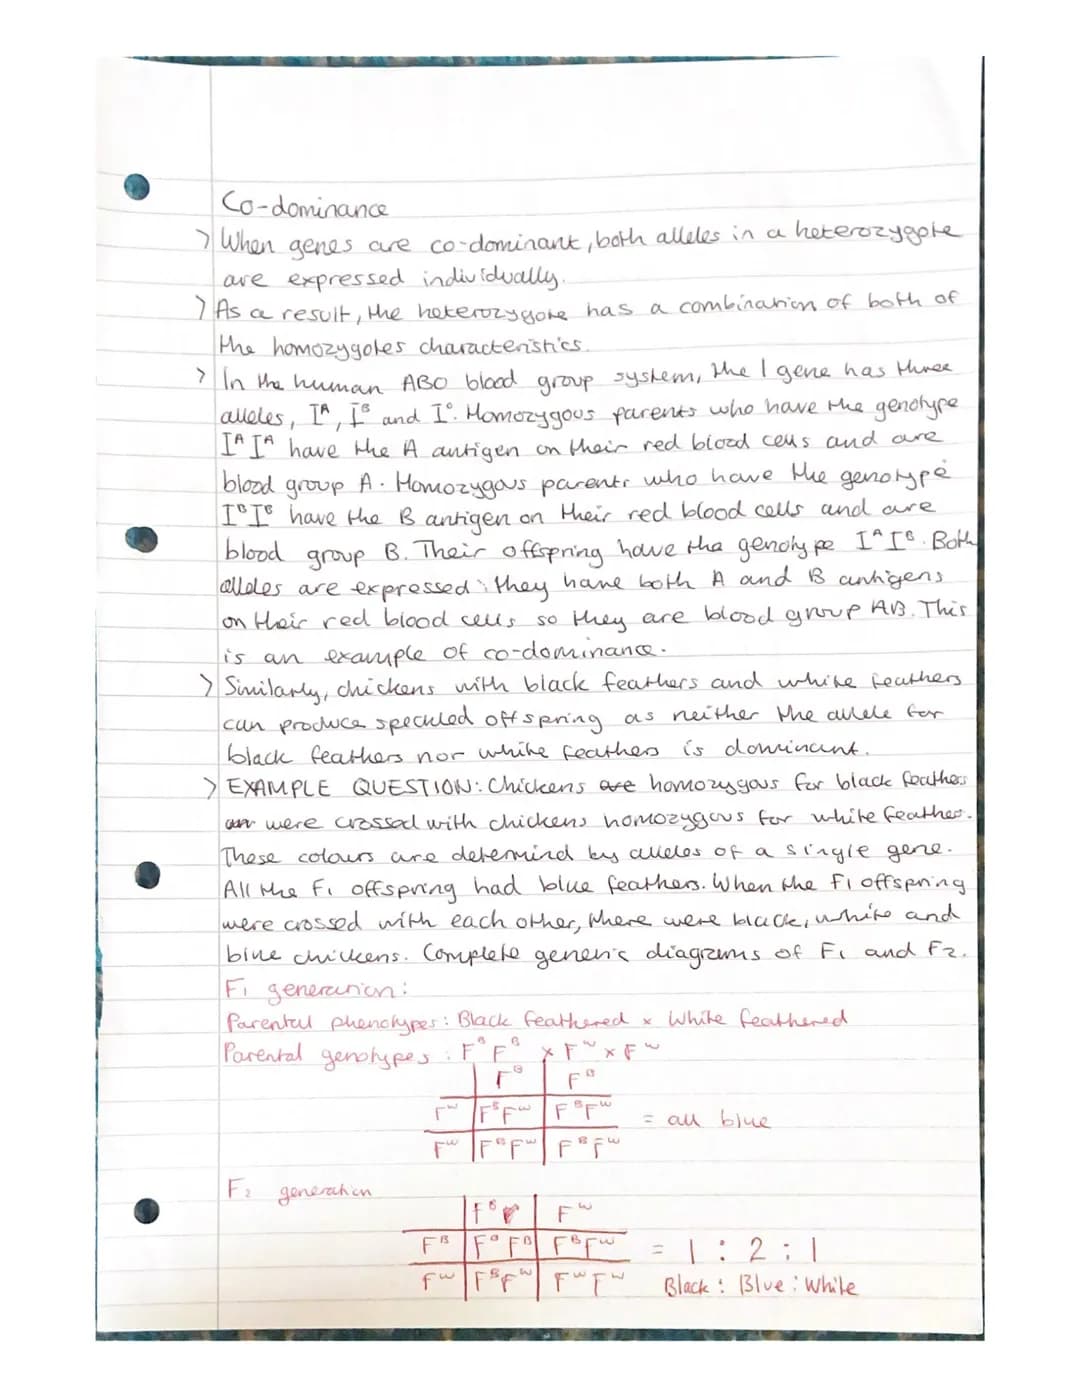 Co-dominance
> When genes are co-dominant, both alleles in a heterozygote
are expressed individually.
> As a result, the heterozygote has a combination of both of
the homozygotes characteristics.
> In the human ABO blood group system, the I gene has three
alleles, Iᴬ, Iᴮ and Iᴼ. Homozygous parents who have the genotype
Iᴬ Iᴬ have the A antigen on their red blood cells and are
blood group A. Homozygous parents who have the genotype
Iᴮ Iᴮ have the B antigen on their red blood cells and are
blood group B. Their offspring have the genotype Iᴬ Iᴮ. Both
alleles are expressed; they have both A and B antigens
on their red blood cells so they are blood group AB. This
is an example of co-dominance.
> Similarly, chickens with black feathers and white feathers
can produce speckled offspring as neither the allele for
black feathers nor white feathers is dominant.
> EXAMPLE QUESTION: Chickens are homozygous for black feathers
were crossed with chickens homozygous for white feathers.
These colours are determind by alleles of a single gene.
All the F₁ offspring had blue feathers. When the F1 offspring
were crossed with each other, there were black, white and
blue chickens. Complete genetic diagrams of F₁ and F2.
F₁ generation:
Parental phenotypes: Black feathered x White feathered
Parental genotypes : Fᴮ Fᴮ x Fᵂ x Fᵂ
Fᴮ Fᴮ
Fᵂ FᴮFᵂ FᴮFᵂ = all blue
Fᵂ FᴮFᵂ FᴮFᵂ
F₂ generation
Fᴮ Fᵂ
Fᴮ Fᴮ Fᴮ FᴮFᵂ = 1 : 2 : 1
Fᵂ FᴮFᵂ FᵂFᵂ Black : Blue : White